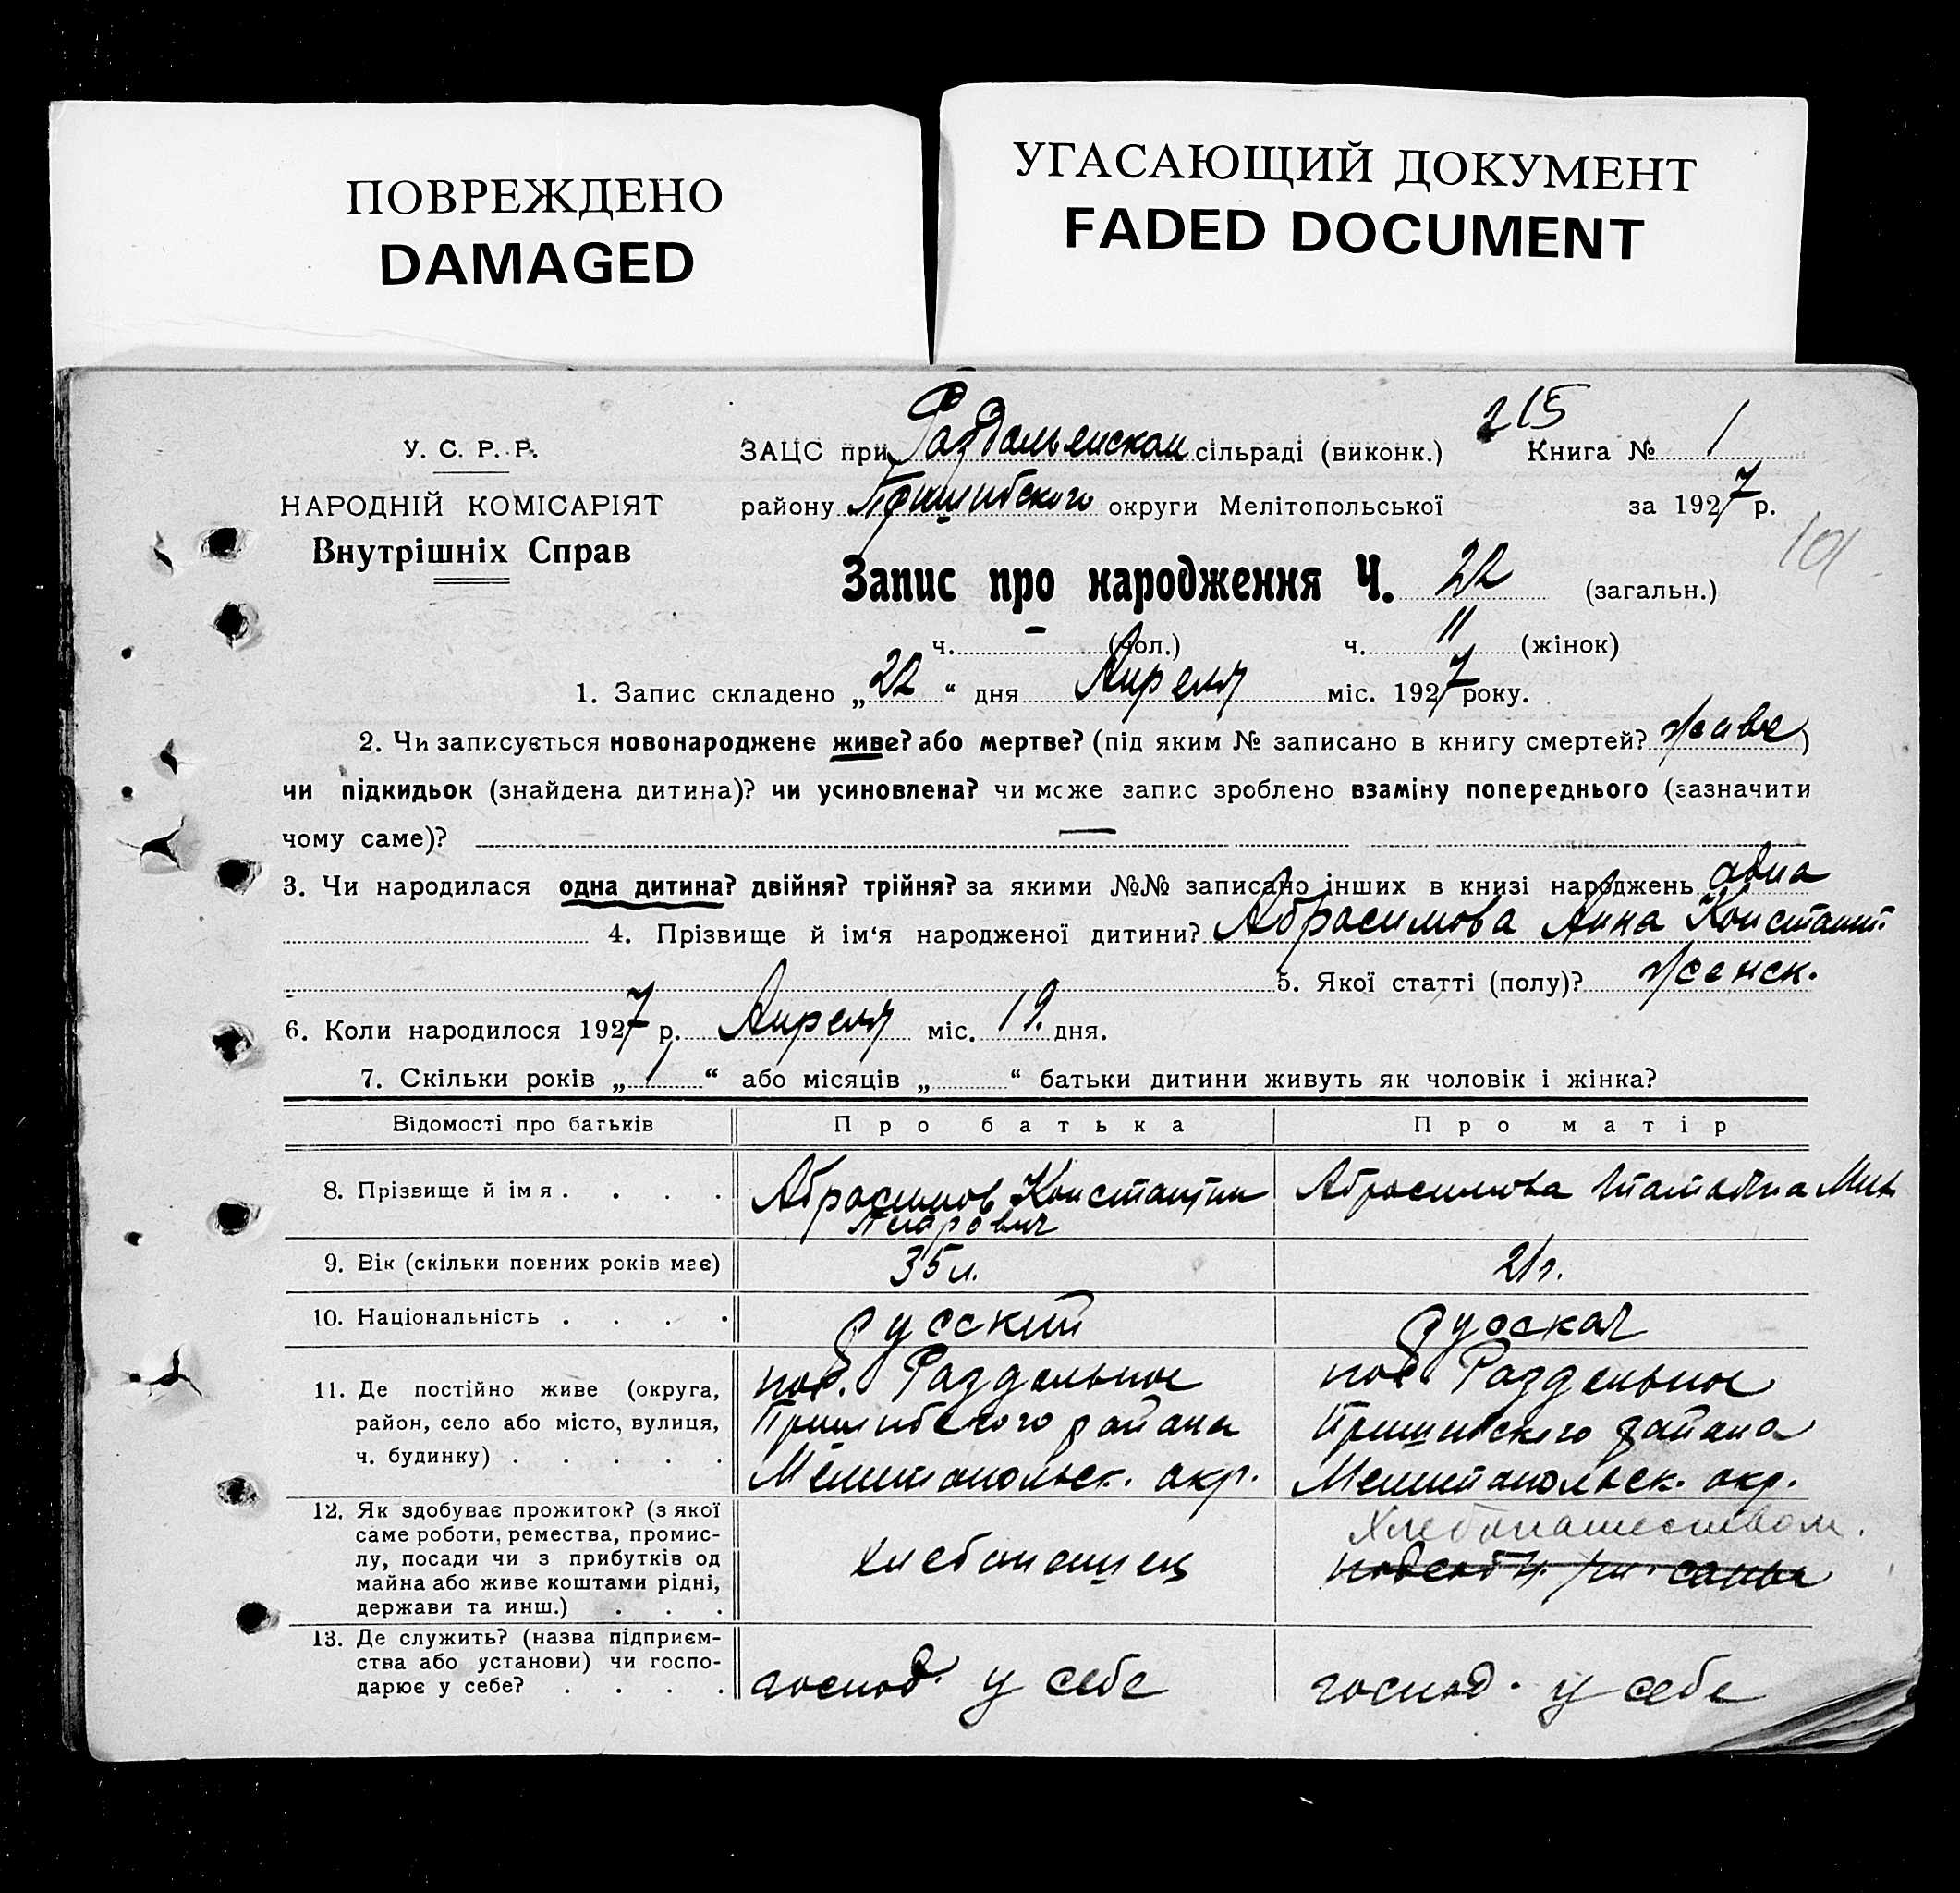 ПОВРЕЖДЕНО
DAMAGED
УГАСАЮЩИЙ ДОКУМЕНТ
FADED DOCUMENT
215
У. С. Р. Р.
НАРОДНІЙ КОМІСАРІЯТ
Внутрішніх Справ
ЗАЦС при Раздольенском сільраді (виконк.) Книга № 1
району Пришибского округи Мелітопольської за 1927 р.
101
Запис про народження Ч. 22 (загальн.)
ч. — (чол.) ч. 11 (жінок)
1. Запис складено „22“ дня Апреля міс. 1927 року.
2. Чи записується новонароджене живе? або мертве? (під яким № записано в книгу смертей? живе)
чи підкидьок (знайдена дитина)? чи усиновлена? чи може запис зроблено взаміну попереднього (зазначити
чому саме)? —
3. Чи народилася одна дитина? двійня? трійня? за якими №№ записано інших в книзі народжень одна
4. Прізвище й ім‘я народженої дитини? Абросимова Анна Констант.
5. Якої статті (полу)? женск.
6. Коли народилося 1927 р. Апреля міс. 19. дня.
7. Скільки років „1“ або місяців „ “ батьки дитини живуть як чоловік і жінка?
Відомості про батьків Про батька Про матір
8. Прізвище й імя . . . . Абросимов Константин Петрович Абросимова Татьяна Мих
9. Вік (скільки повних років має) 35 л. 21 г.
10. Національність . . . . русский русская
11. Де постійно живе (округа,
район, село або місто, вулиця,
ч. будинку) . . . . .
пос. Раздольное
Пришибского района
Мелитопольск. окр.
пос Раздольное
Пришибского района
Мелитопольск. окр.
12. Як здобуває прожиток? (з якої
саме роботи, ремества, промис-
лу, посади чи з прибутків од
майна або живе коштами рідні,
держави та инш.) . . .
хлебопашец
Хлебопашеством.
13. Де служить? (назва підприєм-
ства або установи) чи госпо-
дарює у себе? . . . .
господ. у себе
господ. у себе